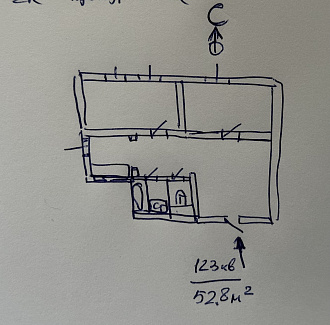 С
123кв
52,8 м²